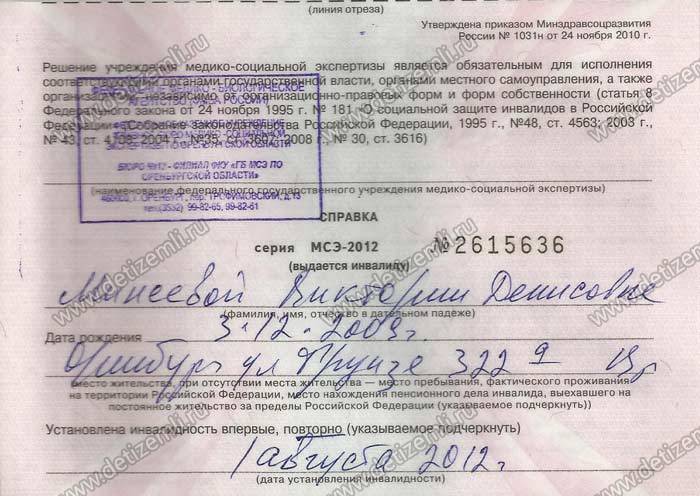 (линия отреза)
Утверждена приказом Минздравсоцразвития
России № 1031н от 24 ноября 2010 г.
Решение учреждения медико-социальной экспертизы является обязательным для исполнения
соответствующими органами государственной власти, органами местного самоуправления, а также
организациями независимо от организационно-правовых форм и форм собственности (статья 8
Федерального закона от 24 ноября 1995 г. № 181 «О социальной защите инвалидов в Российской
Федерации» (Собрание законодательства Российской Федерации, 1995 г., №48, ст. 4563; 2003 г.,
№ 43, ст. 2004 г., № 35, ст. 2008 г., № 30, ст. 3616)
ФЕДЕРАЛЬНОЕ МЕДИКО - БИОЛОГИЧЕСКОЕ
АГЕНТСТВО (ФМБА РОССИИ)
БЮРО №12 - ФИЛИАЛ ФКУ «ГБ МСЭ ПО
ОРЕНБУРГСКОЙ ОБЛАСТИ»
г. ОРЕНБУРГ, пер. ТРОФИМОВСКИЙ, д.13
тел.(3532) 99-82-65, 99-82-61
(наименование федерального государственного учреждения медико-социальной экспертизы)
СПРАВКА
серия МСЭ-2012 №2615636
(выдается инвалиду)
Минеевой Виктории Денисовне
(фамилия, имя, отчество в дательном падеже)
Дата рождения 3.12.2009г.
Оренбург ул Фрунзе
(место жительства, при отсутствии места жительства — место пребывания, фактического проживания
на территории Российской Федерации, место нахождения пенсионного дела инвалида, выехавшего на
постоянное жительство за пределы Российской Федерации (указываемое подчеркнуть))
Установлена инвалидность впервые, повторно (указываемое подчеркнуть)
1 августа 2012г
(дата установления инвалидности)
www.detizemli.ru